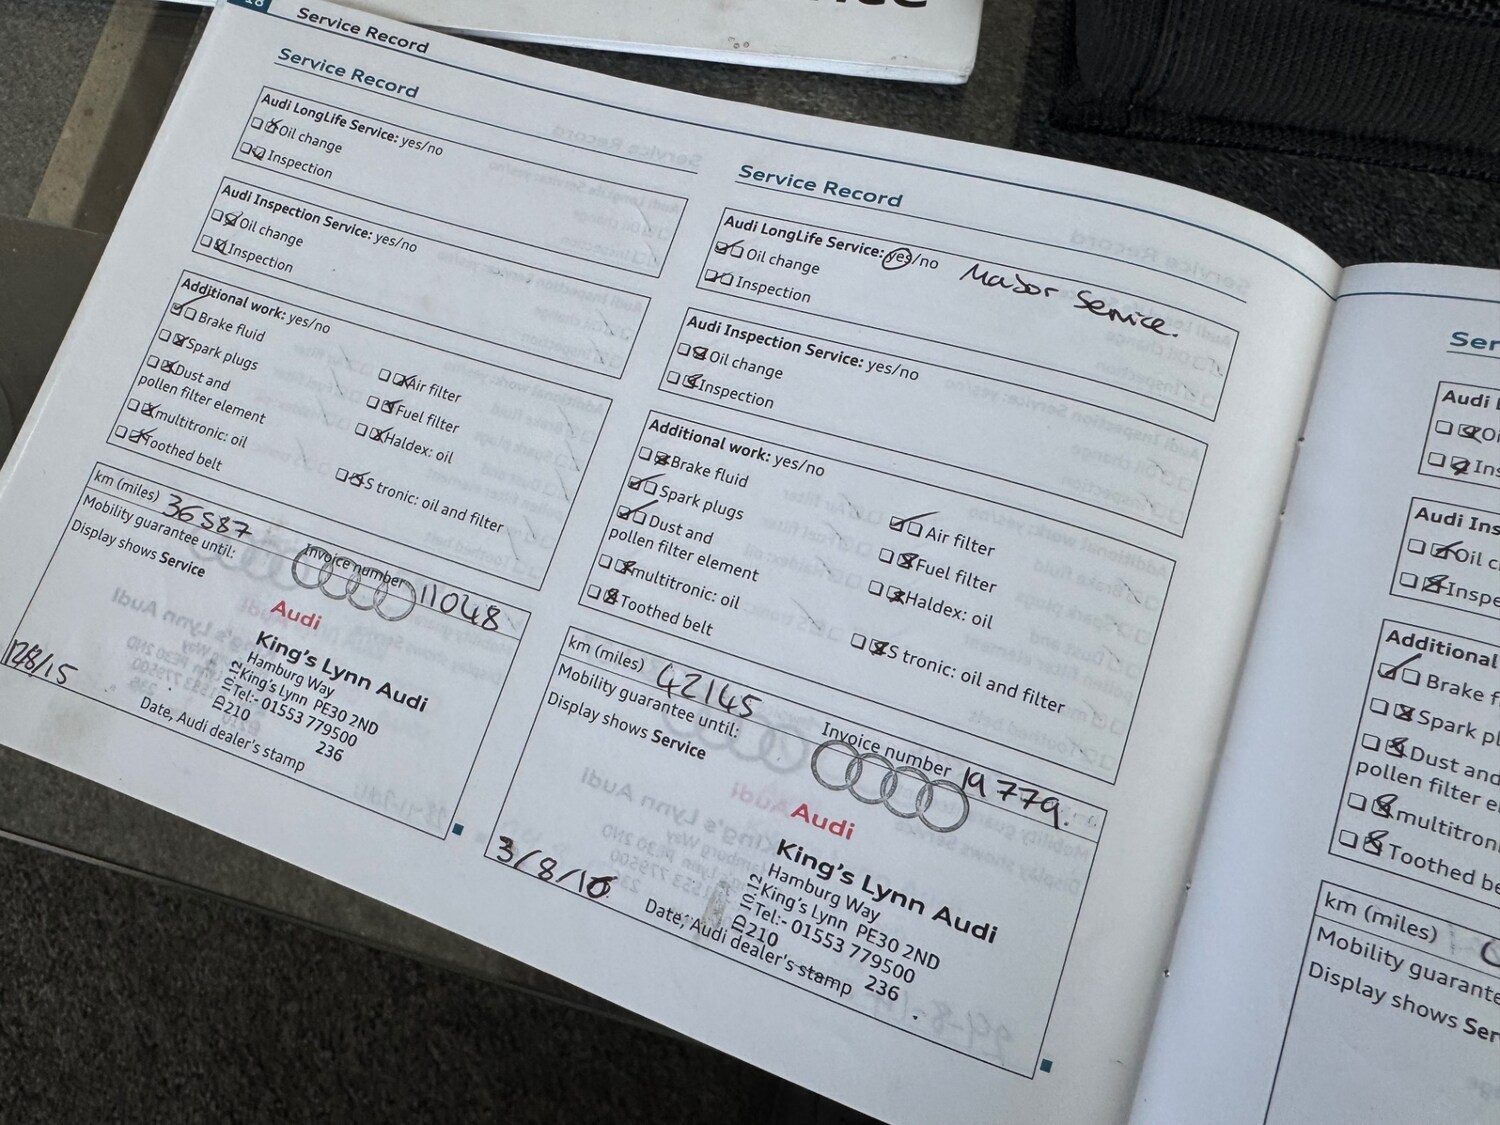 18 Service Record
Service Record
Audi LongLife Service: yes/no
Oil change
Inspection
Audi Inspection Service: yes/no
Oil change
Inspection
Additional work: yes/no
Brake fluid
Spark plugs
Dust and
pollen filter element
multitronic: oil
Toothed belt
Air filter
Fuel filter
Haldex: oil
S tronic: oil and filter
km (miles) 36587
Mobility guarantee until:
Invoice number 11048
Display shows Service
Audi
King's Lynn Audi
Hamburg Way
King's Lynn PE30 2ND
Tel:- 01553 779500
210 236
12/8/15
Date, Audi dealer's stamp
Service Record
Audi LongLife Service: yes/no Major Service.
Oil change
Inspection
Audi Inspection Service: yes/no
Oil change
Inspection
Additional work: yes/no
Brake fluid
Spark plugs
Dust and
pollen filter element
multitronic: oil
Toothed belt
Air filter
Fuel filter
Haldex: oil
S tronic: oil and filter
km (miles) 42145
Mobility guarantee until:
Invoice number 19779.
Display shows Service
Audi
King's Lynn Audi
Hamburg Way
King's Lynn PE30 2ND
Tel:- 01553 779500
210 236
3/8/16
Date, Audi dealer's stamp
Ser
Audi
Oi
Ins
Audi Ins
Oil c
Inspe
Additional
Brake f
Spark pl
Dust and
pollen filter e
multitron
Toothed be
km (miles)
Mobility guarante
Display shows Ser